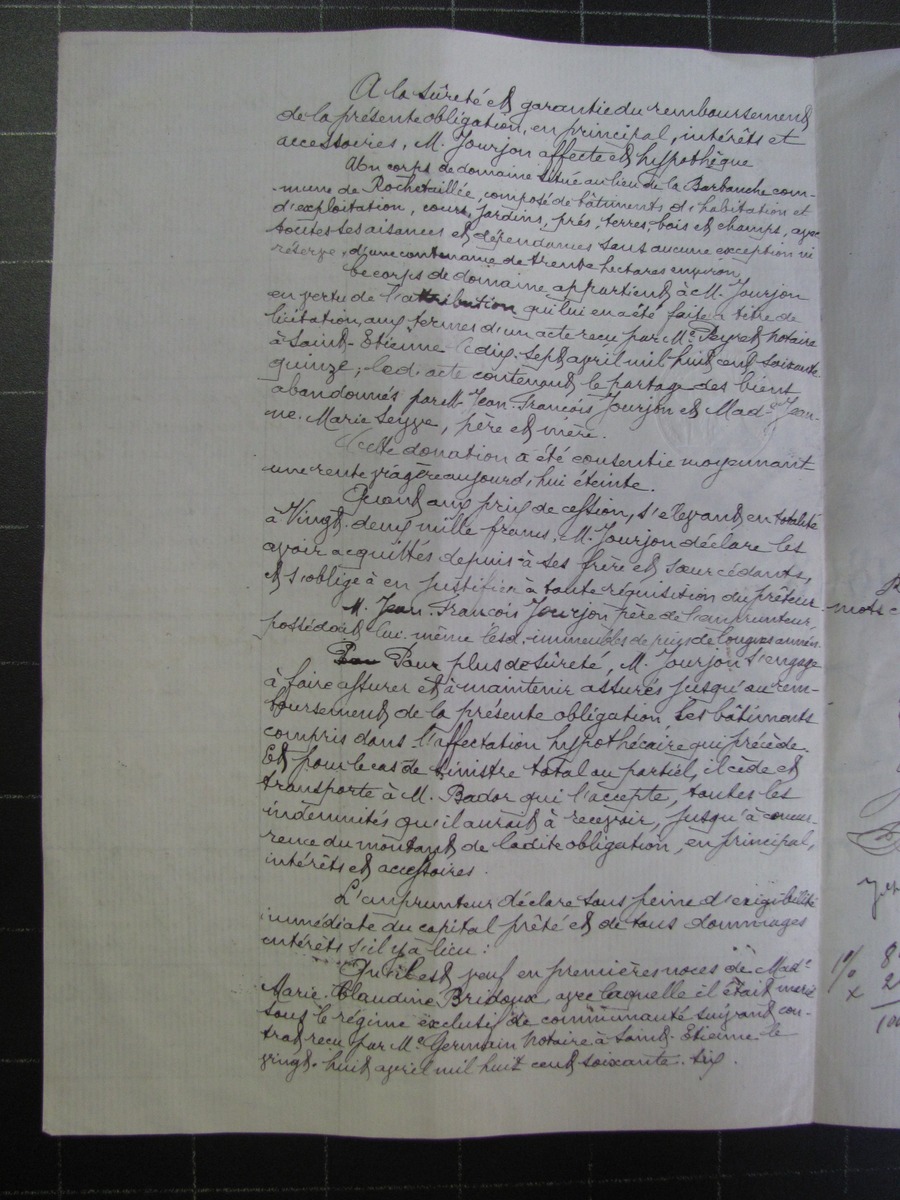 A la sûreté et garantie du remboursement
de la présente obligation, en principal, intérêts et
accessoires, M. Jourjon affecte et hypothèque
Un corps de domaine situé au lieu de la Barbanche com-
mune de Rochetaillée, composé de bâtiments d'habitation et
d'exploitation, cours, jardins, prés, terres, bois et champs, avec
toutes ses aisances et dépendances sans aucune exception ni
réserve, d'une contenance de trente hectares environ.
Ce corps de domaine appartient à M. Jourjon
en vertu de l'attribution qui lui en a été faite à titre de
licitation, aux termes d'un acte reçu par Me Peyret notaire
à Saint-Etienne le dix-sept avril mil huit cent soixante
quinze; led. acte contenant le partage des biens
abandonnés par M. Jean-François Jourjon et Made Jean-
ne-Marie Seyve, père et mère.
Cette donation a été consentie moyennant
une rente viagère aujourd'hui éteinte.
Quant aux prix de cession, s'élevant en totalité
à Vingt-deux mille francs, M. Jourjon déclare les
avoir acquittés depuis à ses frère et sœur cédants,
et s'oblige à en justifier à toute réquisition du prêteur.
M. Jean-François Jourjon père de l'emprunteur,
possédait lui-même lesd. immeubles depuis de longues années.
Pour plus de sûreté, M. Jourjon s'engage
à faire assurer et à maintenir assurés jusqu'au rem-
boursement de la présente obligation, les bâtiments
compris dans l'affectation hypothécaire qui précède.
Et pour le cas de sinistre total ou partiel, il cède et
transporte à M. Bador qui l'accepte, toutes les
indemnités qu'il aurait à recevoir, jusqu'à concur-
rence du montant de ladite obligation, en principal,
intérêts et accessoires.
L'emprunteur déclare sous peine d'exigibilité
immédiate du capital prêté et de tous dommages
intérêts s'il y a lieu:
Qu'il est veuf en premières noces de Made
Marie-Claudine Bridoux, avec laquelle il était marié
sous le régime exclusif de communauté suivant con-
trat reçu par Me Germain notaire à Saint-Etienne le
vingt-huit avril mil huit cent soixante-six.
mots